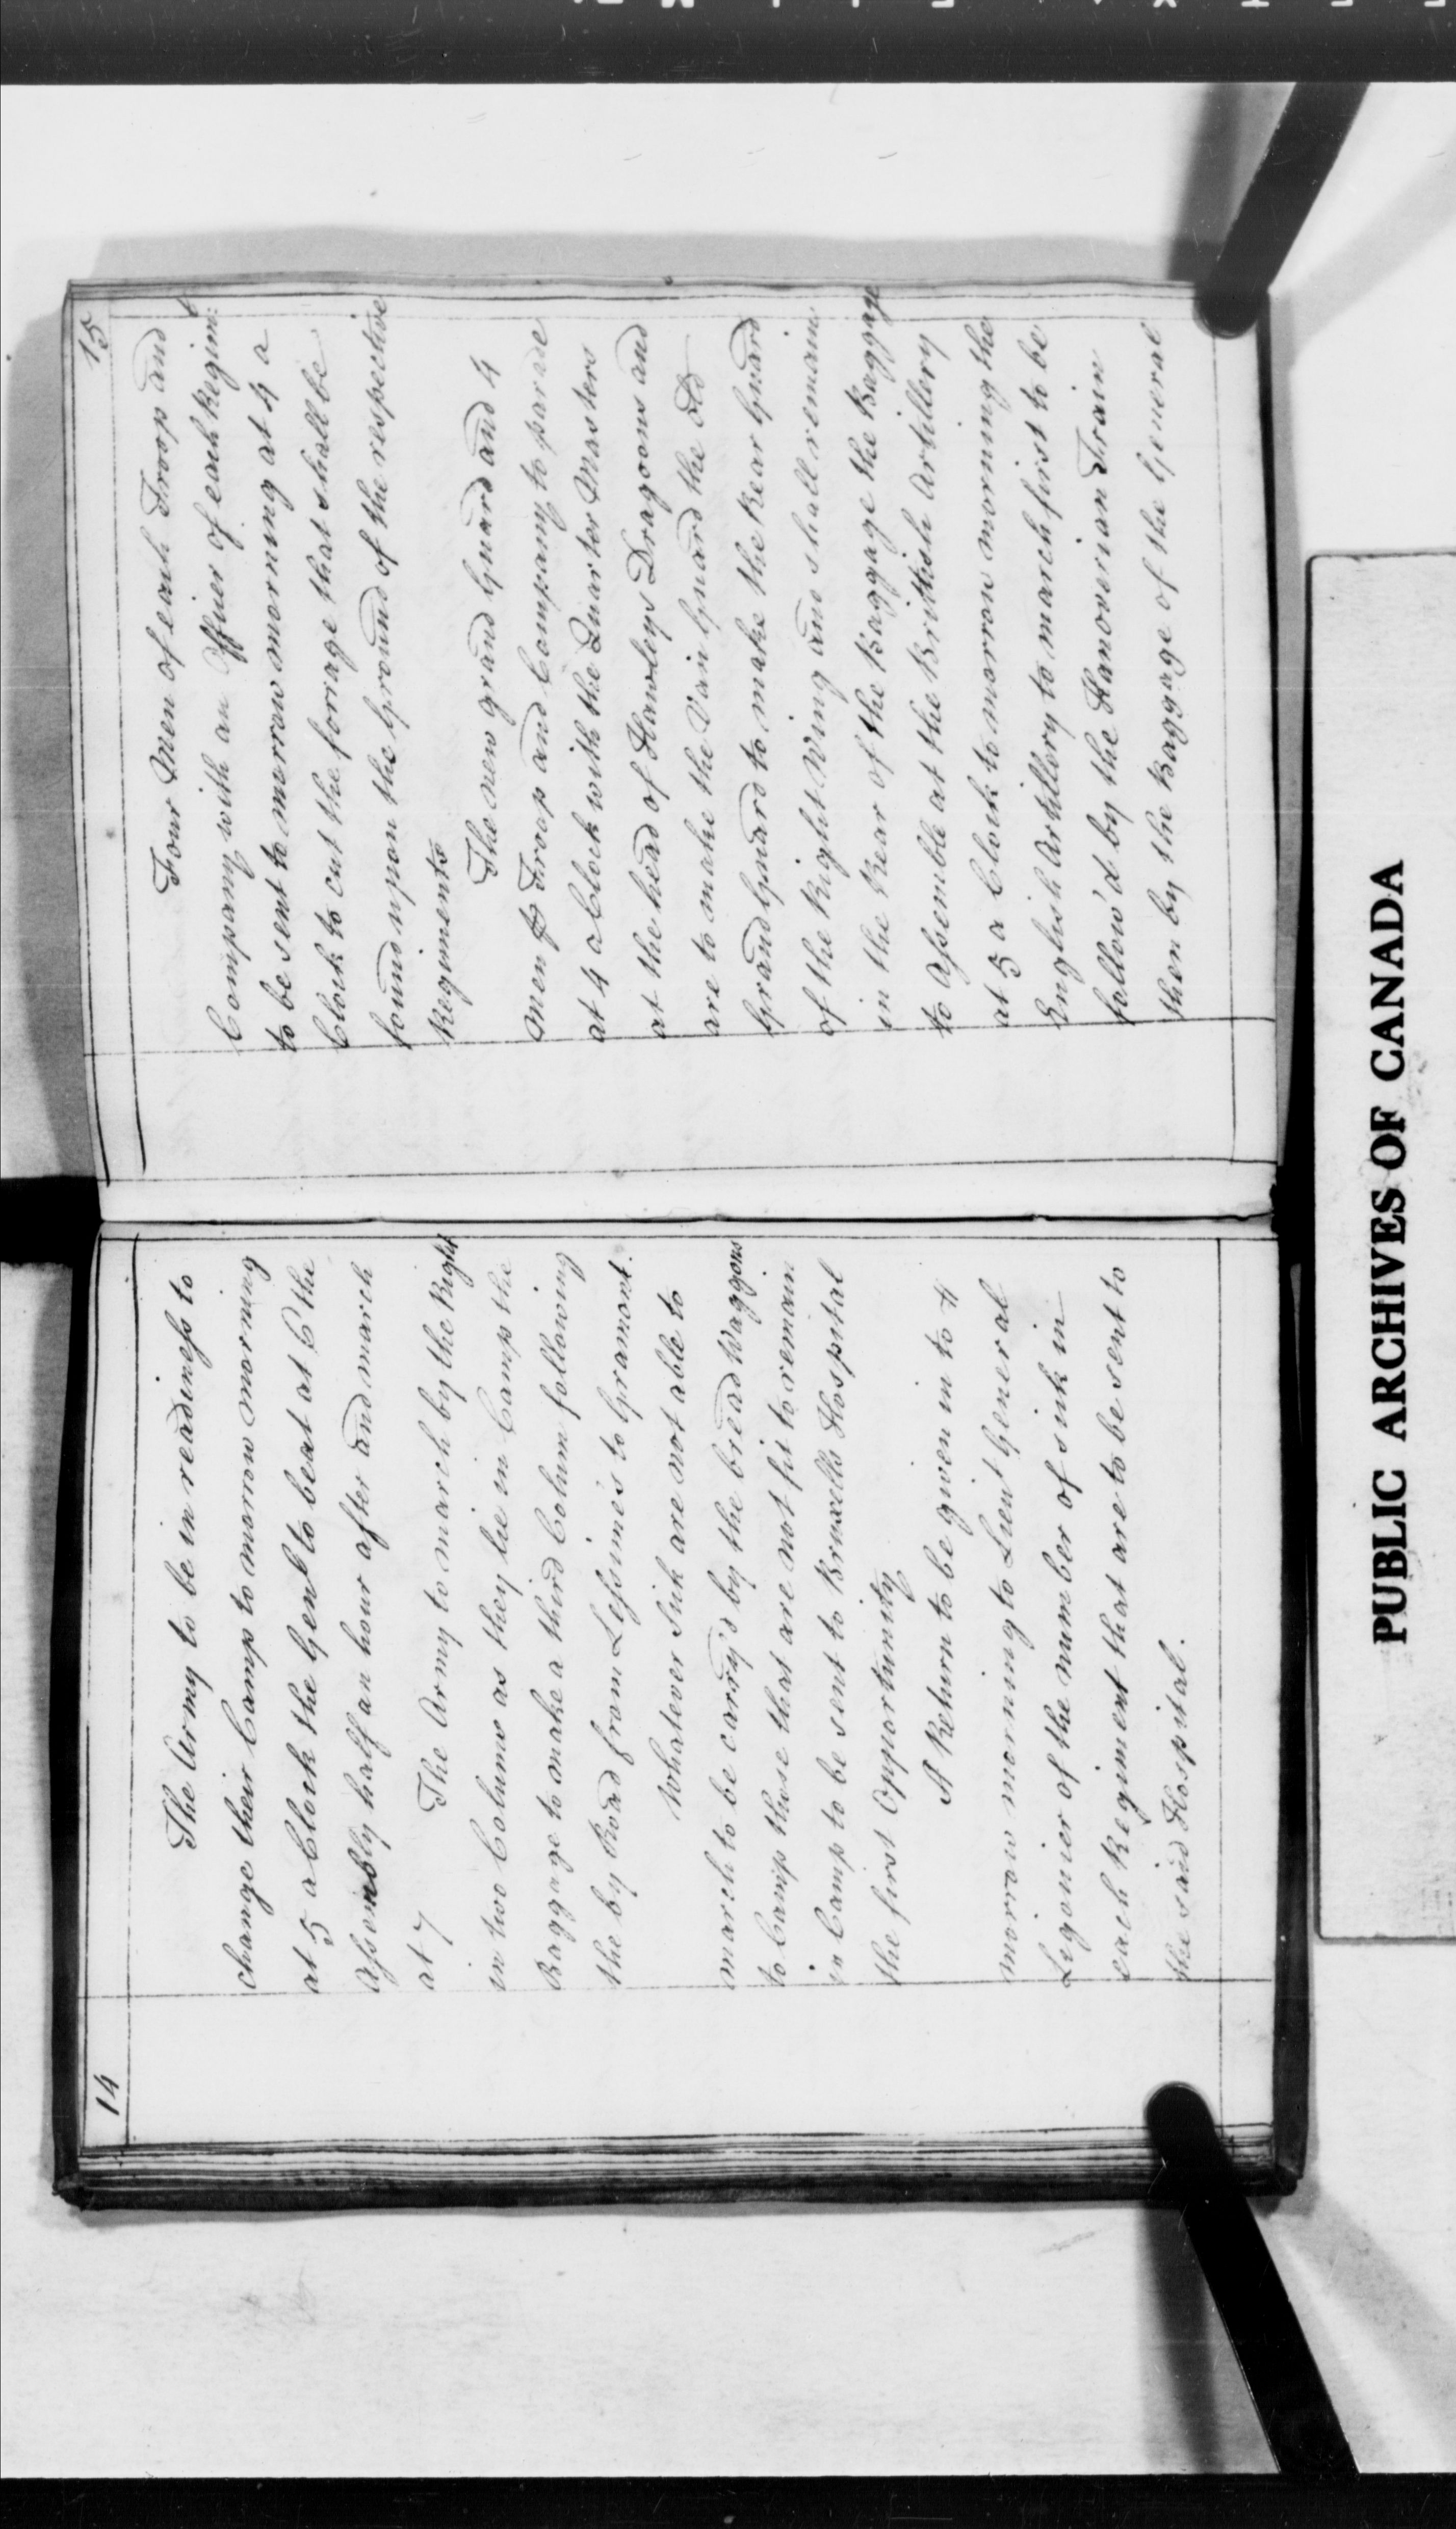 14
The Army to be in readiness to
change their Camp to morrow morning
at 5 a Clock the Genl to beat at 6 the
Assembly half an hour after and march
at 7
The Army to march by the Right
in two Colums as they lie in Camp the
Baggage to make a third Colum following
the by Road from Lessines to Gramont.
Whatever Sick are not able to
march to be carry'd by the bread Waggons
to Camp those that are not fit to remain
in Camp to be sent to Bruxells Hospital
the first Opportunity
A Return to be given in to
morrow morning to Lieut General
Ligonier of the number of sick in
each Regiment that are to be sent to
the said Hospital.
15
Four Men of each Troop and
Company with an Officer of each Regimt:
to be sent to morrow morning at 4 a
Clock to cut the forrage that shall be
found upon the Ground of the respective
Regiments
The new grand Guard and 4
Men ⅌ Troop and Company to parade
at 4 a Clock with the Quarter Masters
at the head of Hawleys Dragoons and
are to make the Van Guard the old
Grand Guard to make the Rear Guard
of the Right Wing and shall remain
in the Rear of the Baggage the Baggage
to Assemble at the Brittish Artillery
at 5 a Clock to morrow morning the
English Artillery to march first to be
follow'd by the Hanoverian Train
then by the Baggage of the General
PUBLIC ARCHIVES OF CANADA